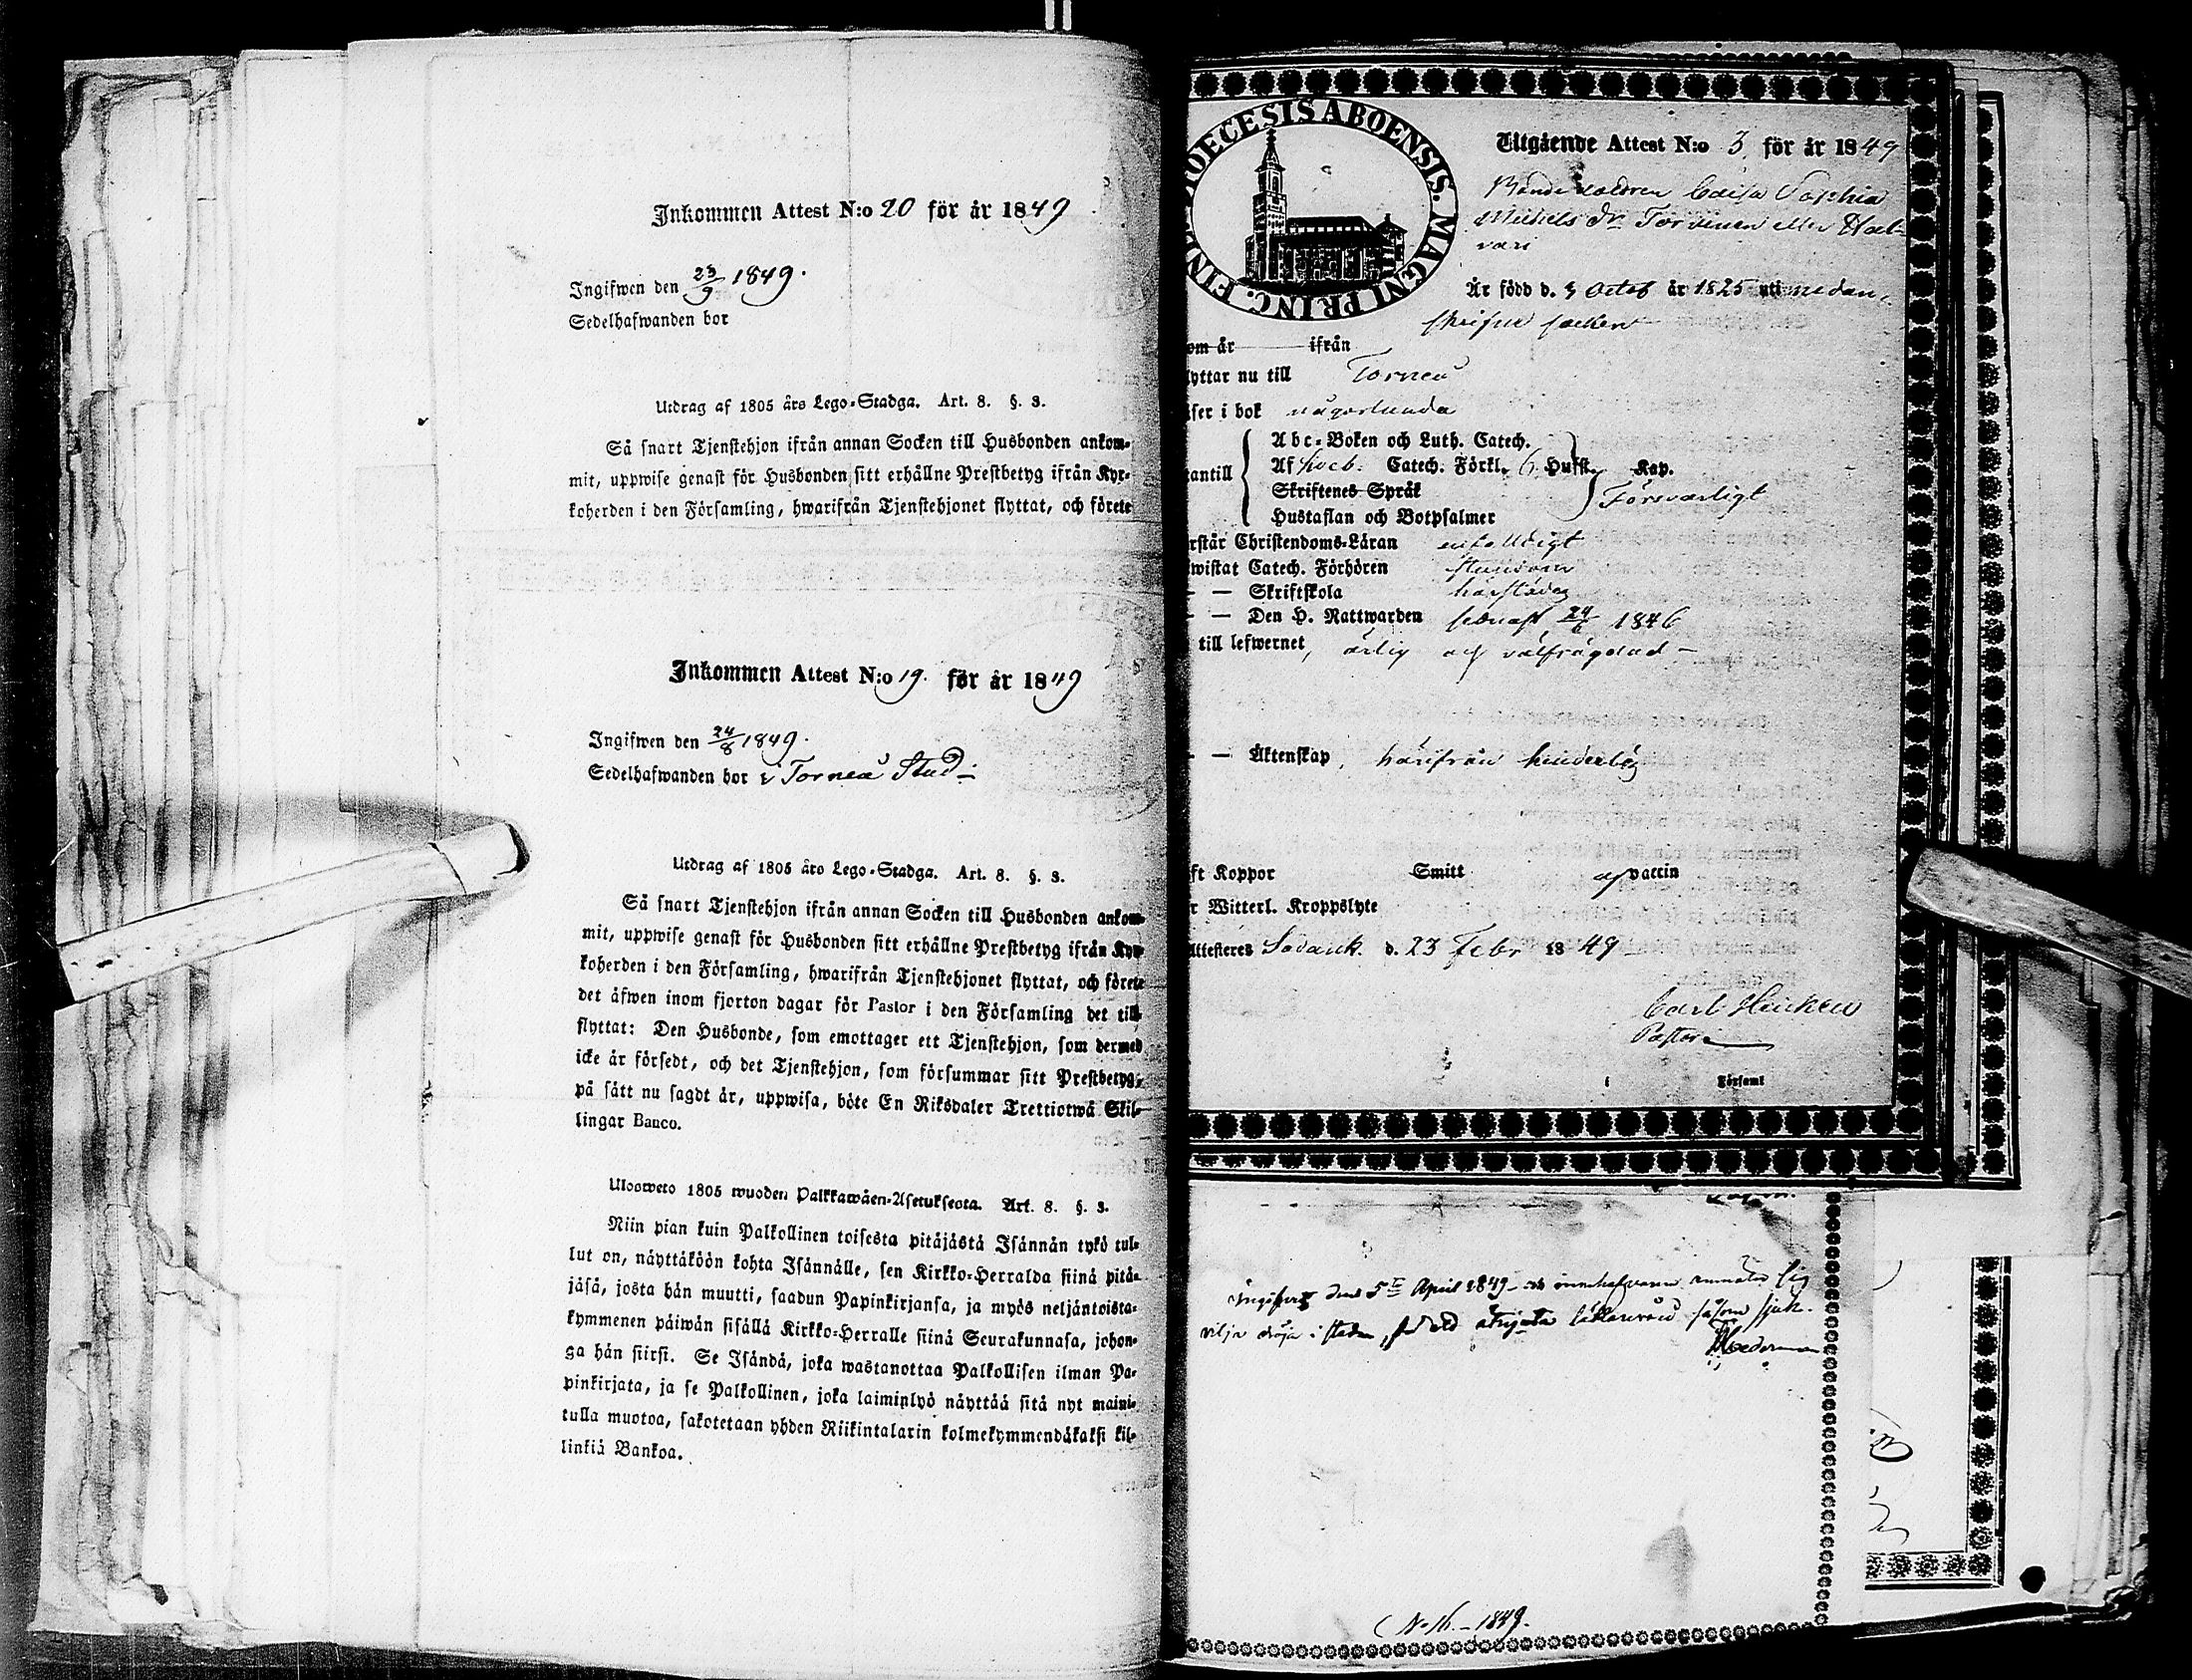 Inkommen Attest N:o 20 för år 1849
Ingifwen den 23/9 1849.
Sedelhafwanden bor
Utdrag af 1805 års Lego-Stadga. Art. 8. §. 3.
Så snart Tjenstehjon ifrån annan Socken till Husbonden ankom-
mit, uppwise genast för Husbonden sitt erhållne Prestbetyg ifrån Kyr-
koherden i den Församling, hwarifrån Tjenstehjonet flyttat, och förete
Inkommen Attest N:o 19. för år 1849
Ingifwen den 24/8 1849.
Sedelhafwanden bor i Torneå Stad
Utdrag af 1805 års Lego-Stadga. Art. 8. §. 3.
Så snart Tjenstehjon ifrån annan Socken till Husbonden ankom-
mit, uppwise genast för Husbonden sitt erhållne Prestbetyg ifrån Kyr-
koherden i den Församling, hwarifrån Tjenstehjonet flyttat, och förete
det äfwen inom fjorton dagar för Pastor i den Församling det till-
flyttat: Den Husbonde, som emottager ett Tjenstehjon, som dermed
icke är försedt, och det Tjenstehjon, som försummar sitt Prestbetyg,
på sätt nu sagdt är, uppwisa, böte En Riksdaler Trettiotwå Skil-
lingar Banco.
Ulosweto 1805 wuoden Palkkawäen-Asetuksesta. Art. 8. §. 3.
Niin pian kuin Palkollinen toisesta pitäjästä Isännän tykö tul-
lut on, näyttäköön kohta Isännälle, sen Kirkko-Herralda siinä pitä-
jäsä, josta hän muutti, saadun Papinkirjansa, ja myös neljäntoista-
kymmenen päiwän sisällä Kirkko-Herralle siinä Seurakunnasa, johon-
ga hän siirsi. Se Isändä, joka wastanottaa Palkollisen ilman Pa-
pinkirjata, ja se Palkollinen, joka laiminlyö näyttää sitä nyt maini-
tulla muotoa, sakotetaan yhden Riikintalarin kolmekymmendäkaksi kil-
linkiä Bankoa.
DIOECESIS ABOENSIS. MAGNI PRINC. FINL.
Utgående Attest N:o 3. för år 1849
Bondedottren Caisa Sophia
Michels dr Torvinen eller Hal-
vari
Är född d. 3 Octob år 1825 uti nedan-
skrifne socken
om år ifrån
lyttar nu till Torneå
iser i bok någorlunda
Abc-Boken och Luth. Catech.
Af Catech. Förkl. 6. Hufst. Kap.
antill
Skriftenes Språk
Försvarligt
Hustaflan och Botpsalmer
rstår Christendoms-Läran enfaldigt
wistat Catech. Förhören stundom
— Skriftskola härstädes
— Den H. Nattwarden senast 24/6 1846
till lefwernet, ärlig och välfrägdad
— Äktenskap, härifrån hinderlös
ft Koppor Smitt af vaccin
r Witterl. Kroppslyte
Attesteres Sodank. d. 23 Febr 1849
Carl Heiken
Pastor
i Församl
Ingifvet den 5te April 1849 innehafvaren anmäld sig
vilja dröja i staden, såsom sjuk.
N:o 16. — 1849.